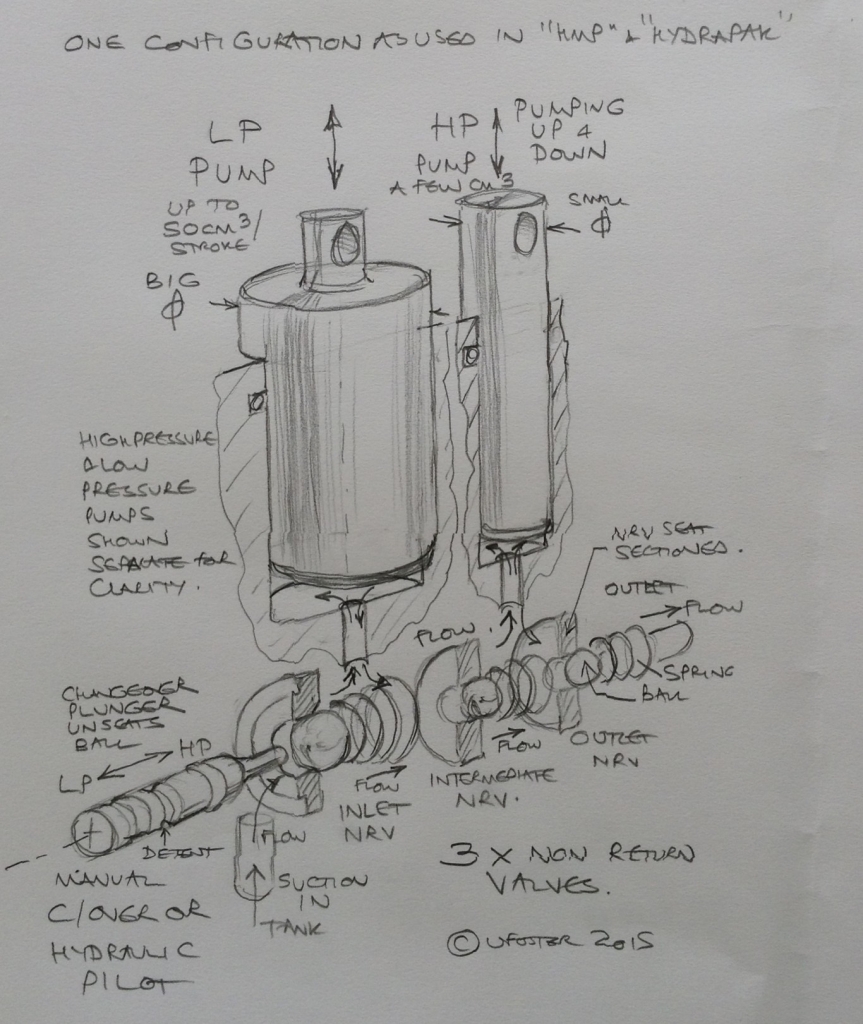 ONE CONFIGURATION AS USED IN "HMP" & "HYDRAPAK"
LP
PUMP
UP TO
50CM³/
STROKE
BIG
Φ
HP
PUMP
A FEW CM³
PUMPING
UP &
DOWN
SMALL
Φ
HIGH PRESSURE
& LOW
PRESSURE
PUMPS
SHOWN
SEPARATE FOR
CLARITY.
NRV SEAT
SECTIONED.
OUTLET
FLOW
FLOW.
SPRING
BALL
CHANGEOVER
PLUNGER
UNSEATS
BALL
HP
LP
FLOW
OUTLET
NRV
FLOW
INLET
NRV
INTERMEDIATE
NRV.
FLOW
DETENT
MANUAL
C/OVER OR
HYDRAULIC
PILOT
SUCTION
IN
TANK
3 X NON RETURN
VALVES.
© UFOSTER 2015